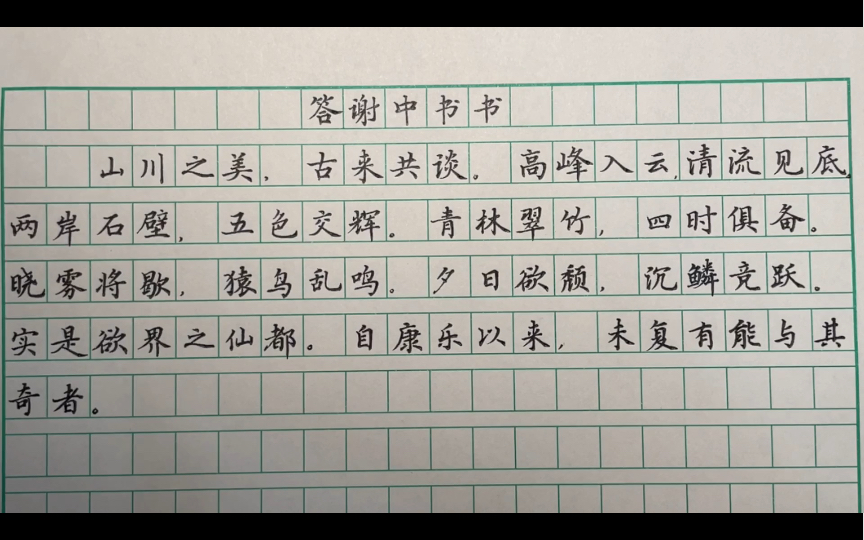 答谢中书书
山川之美，古来共谈。高峰入云，清流见底。
两岸石壁，五色交辉。青林翠竹，四时俱备。
晓雾将歇，猿鸟乱鸣。夕日欲颓，沉鳞竞跃。
实是欲界之仙都。自康乐以来，未复有能与其
奇者。